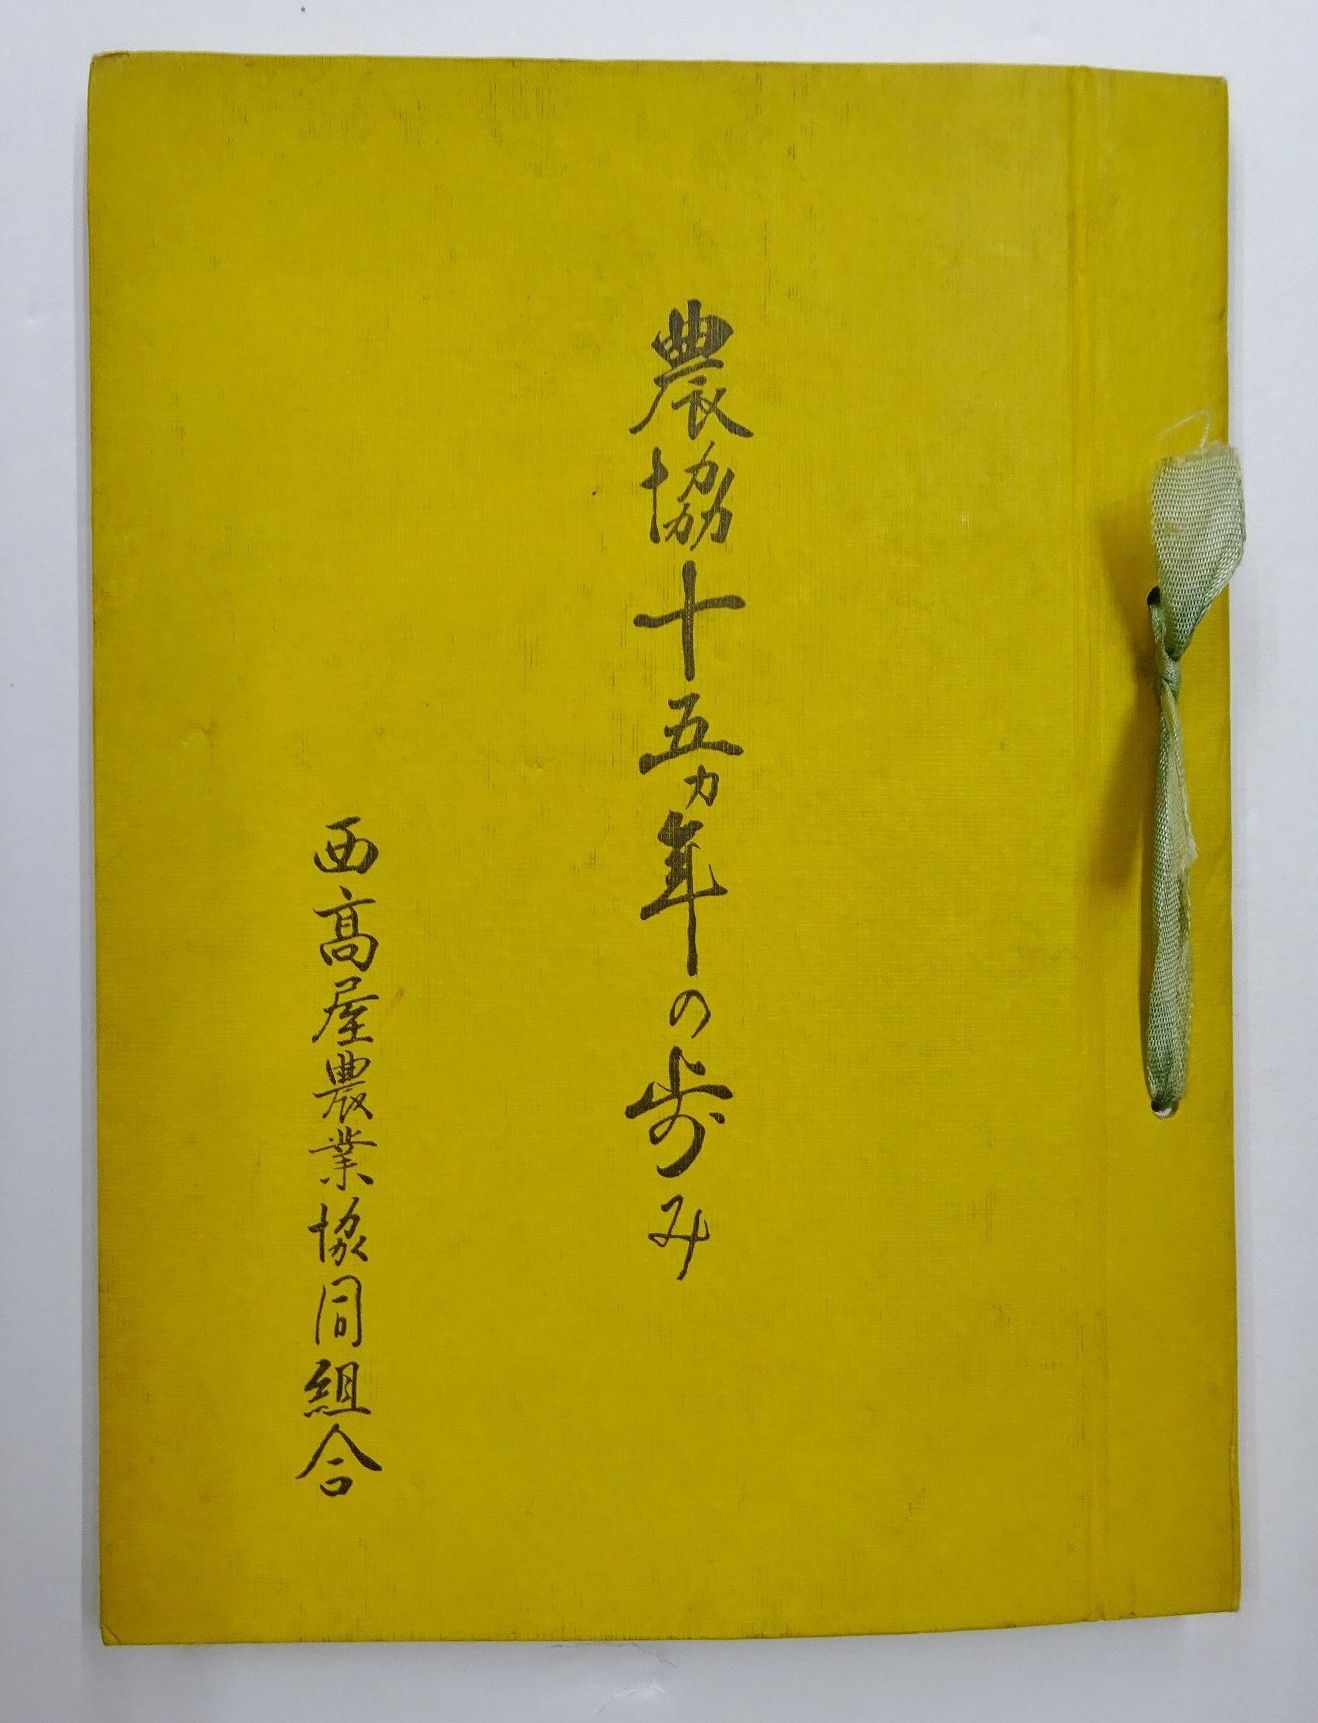 農協十五カ年の歩み
西高屋農業協同組合